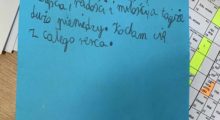 radości i miłości a także
dużo pieniędzy. Kocham cię
z całego serca.